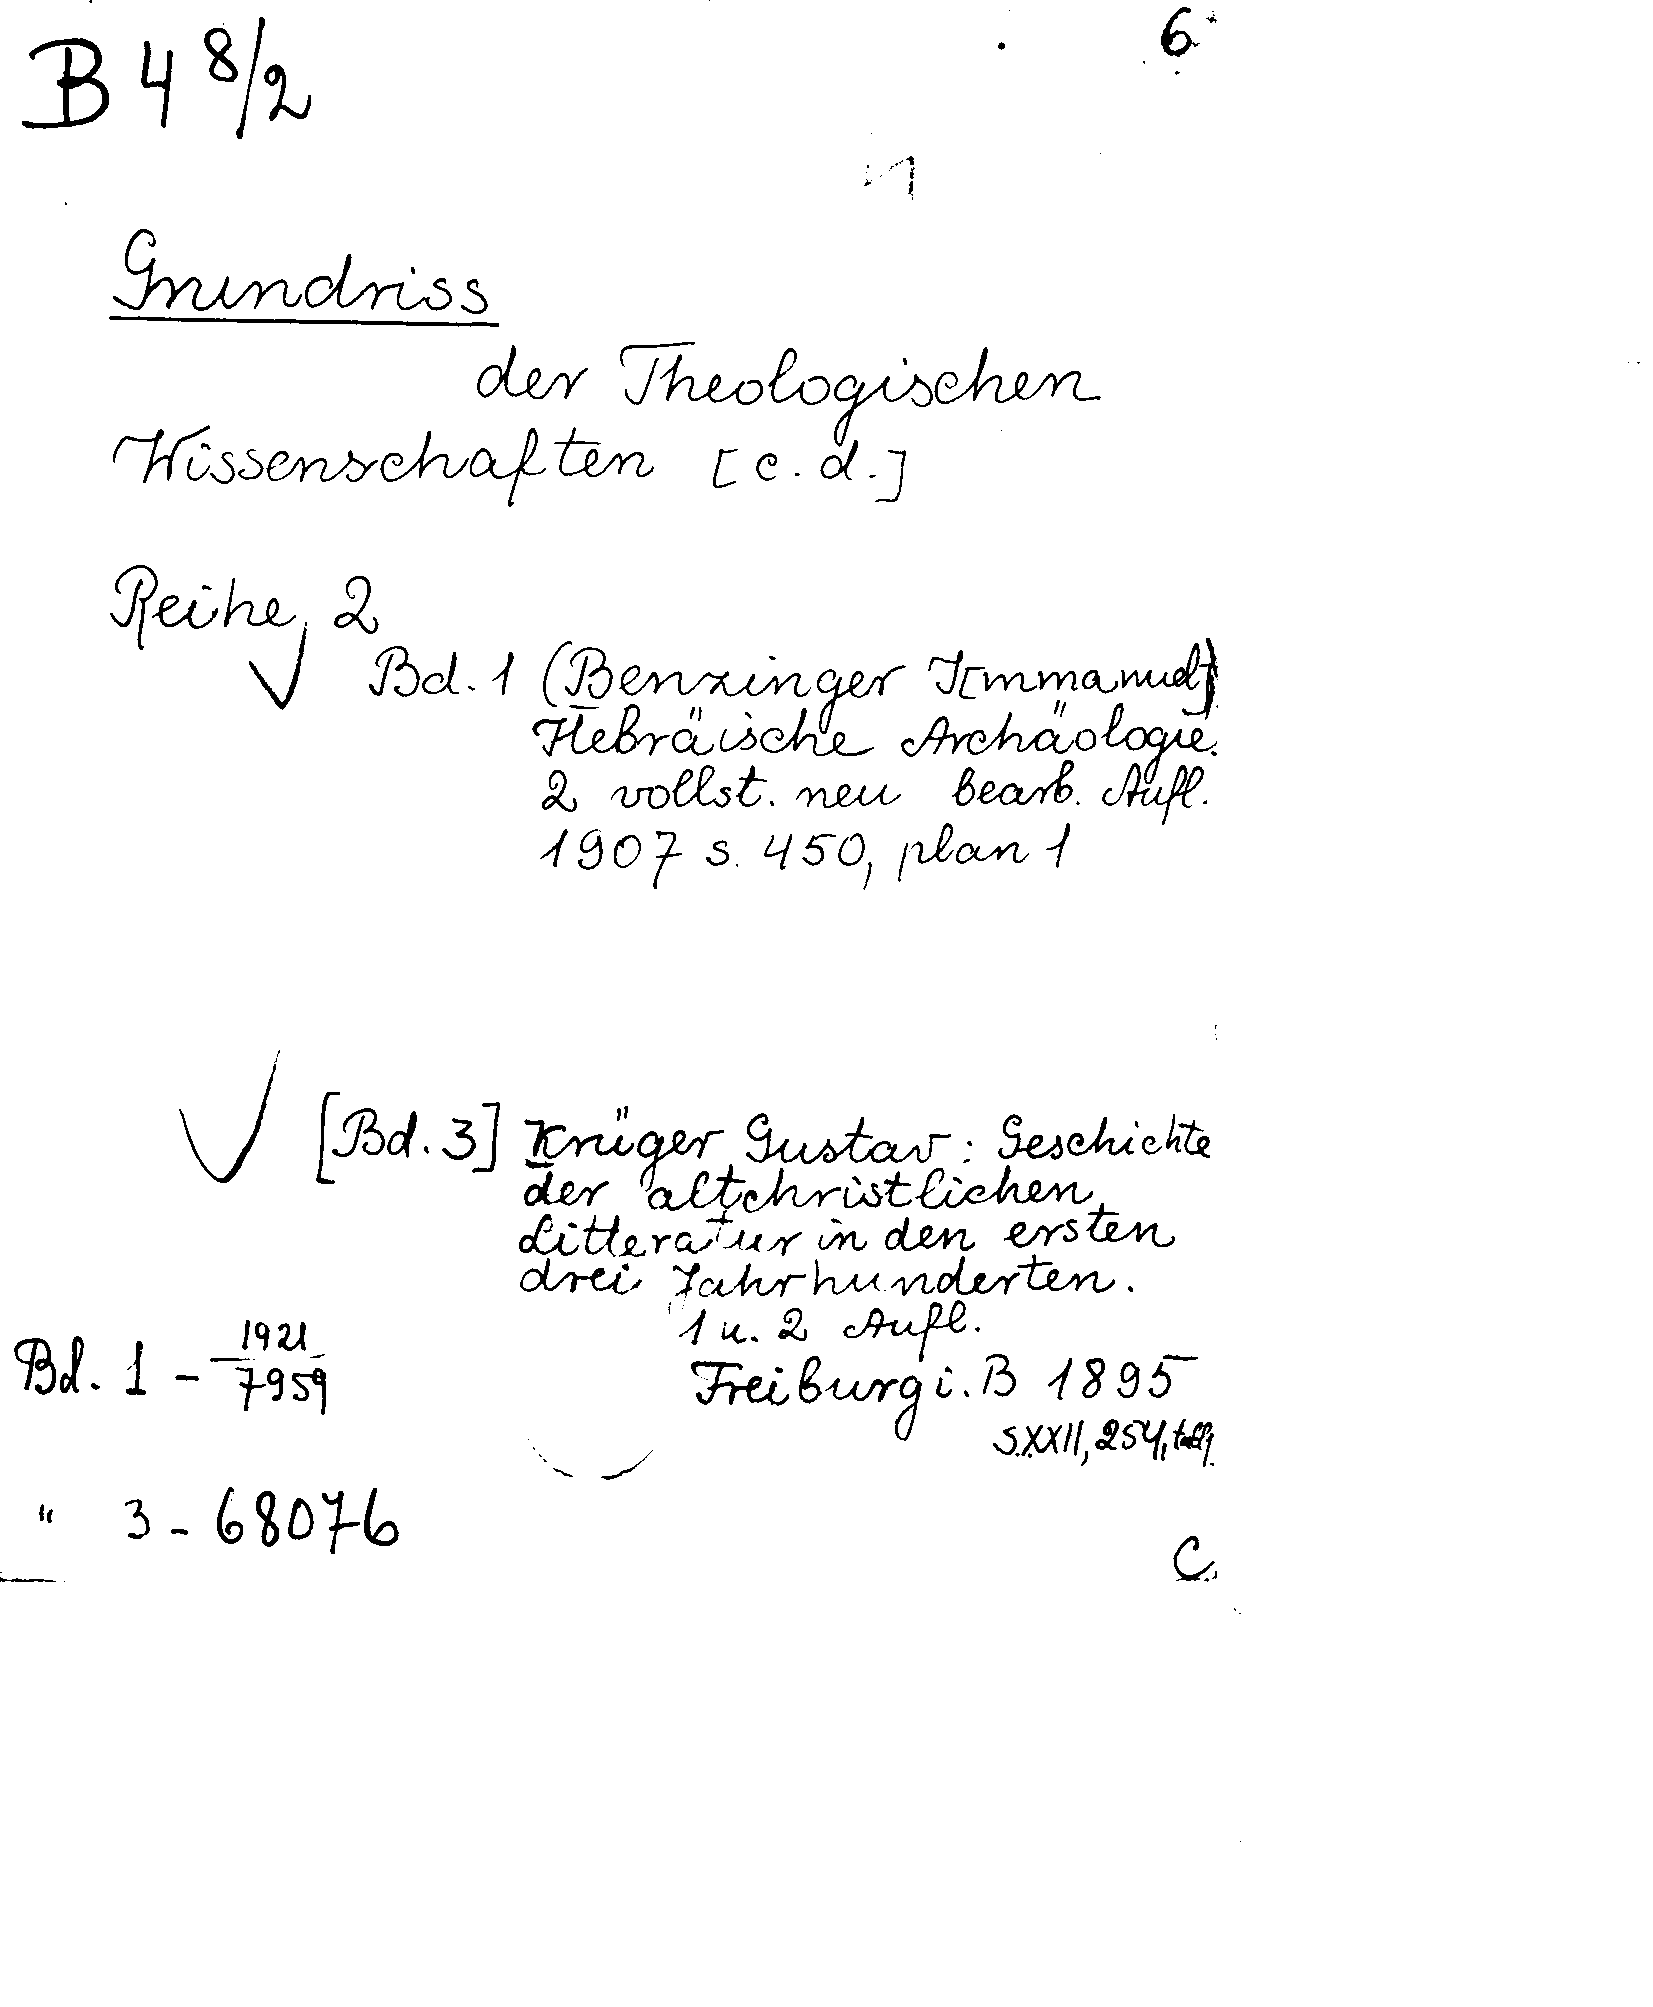 B 4 8/2
6
Grundriss
der Theologischen
Wissenschaften [c.d.]
Reihe 2
Bd. 1 (Benzinger Immanuel)
Hebräische Archäologie.
2 vollst. neu bearb. Aufl.
1907 s. 450, plan 1
[Bd. 3] Krüger Gustav: Geschichte
der altchristlichen
Litteratur in den ersten
drei Jahrhunderten.
1 u. 2 Aufl.
Freiburg i. B 1895
s. XXII, 254,
Bd. 1 - 1921/7959
" 3 - 68076
C.